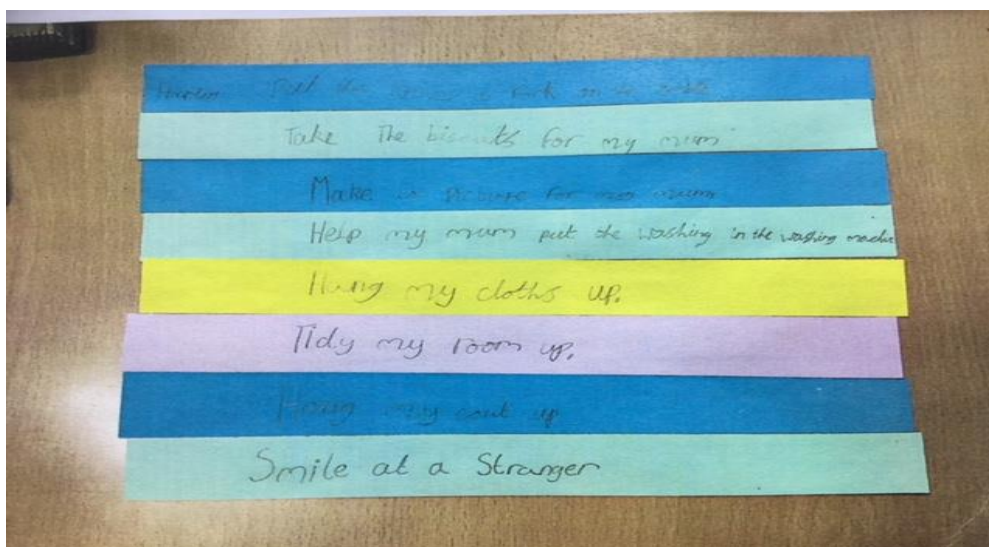 Put the
Take The biscuits for my mum
Make a picture for my mum
Help my mum put the washing in the washing machine
Hung my cloths up.
Tidy my room up.
Houng my cout up
Smile at a Stranger